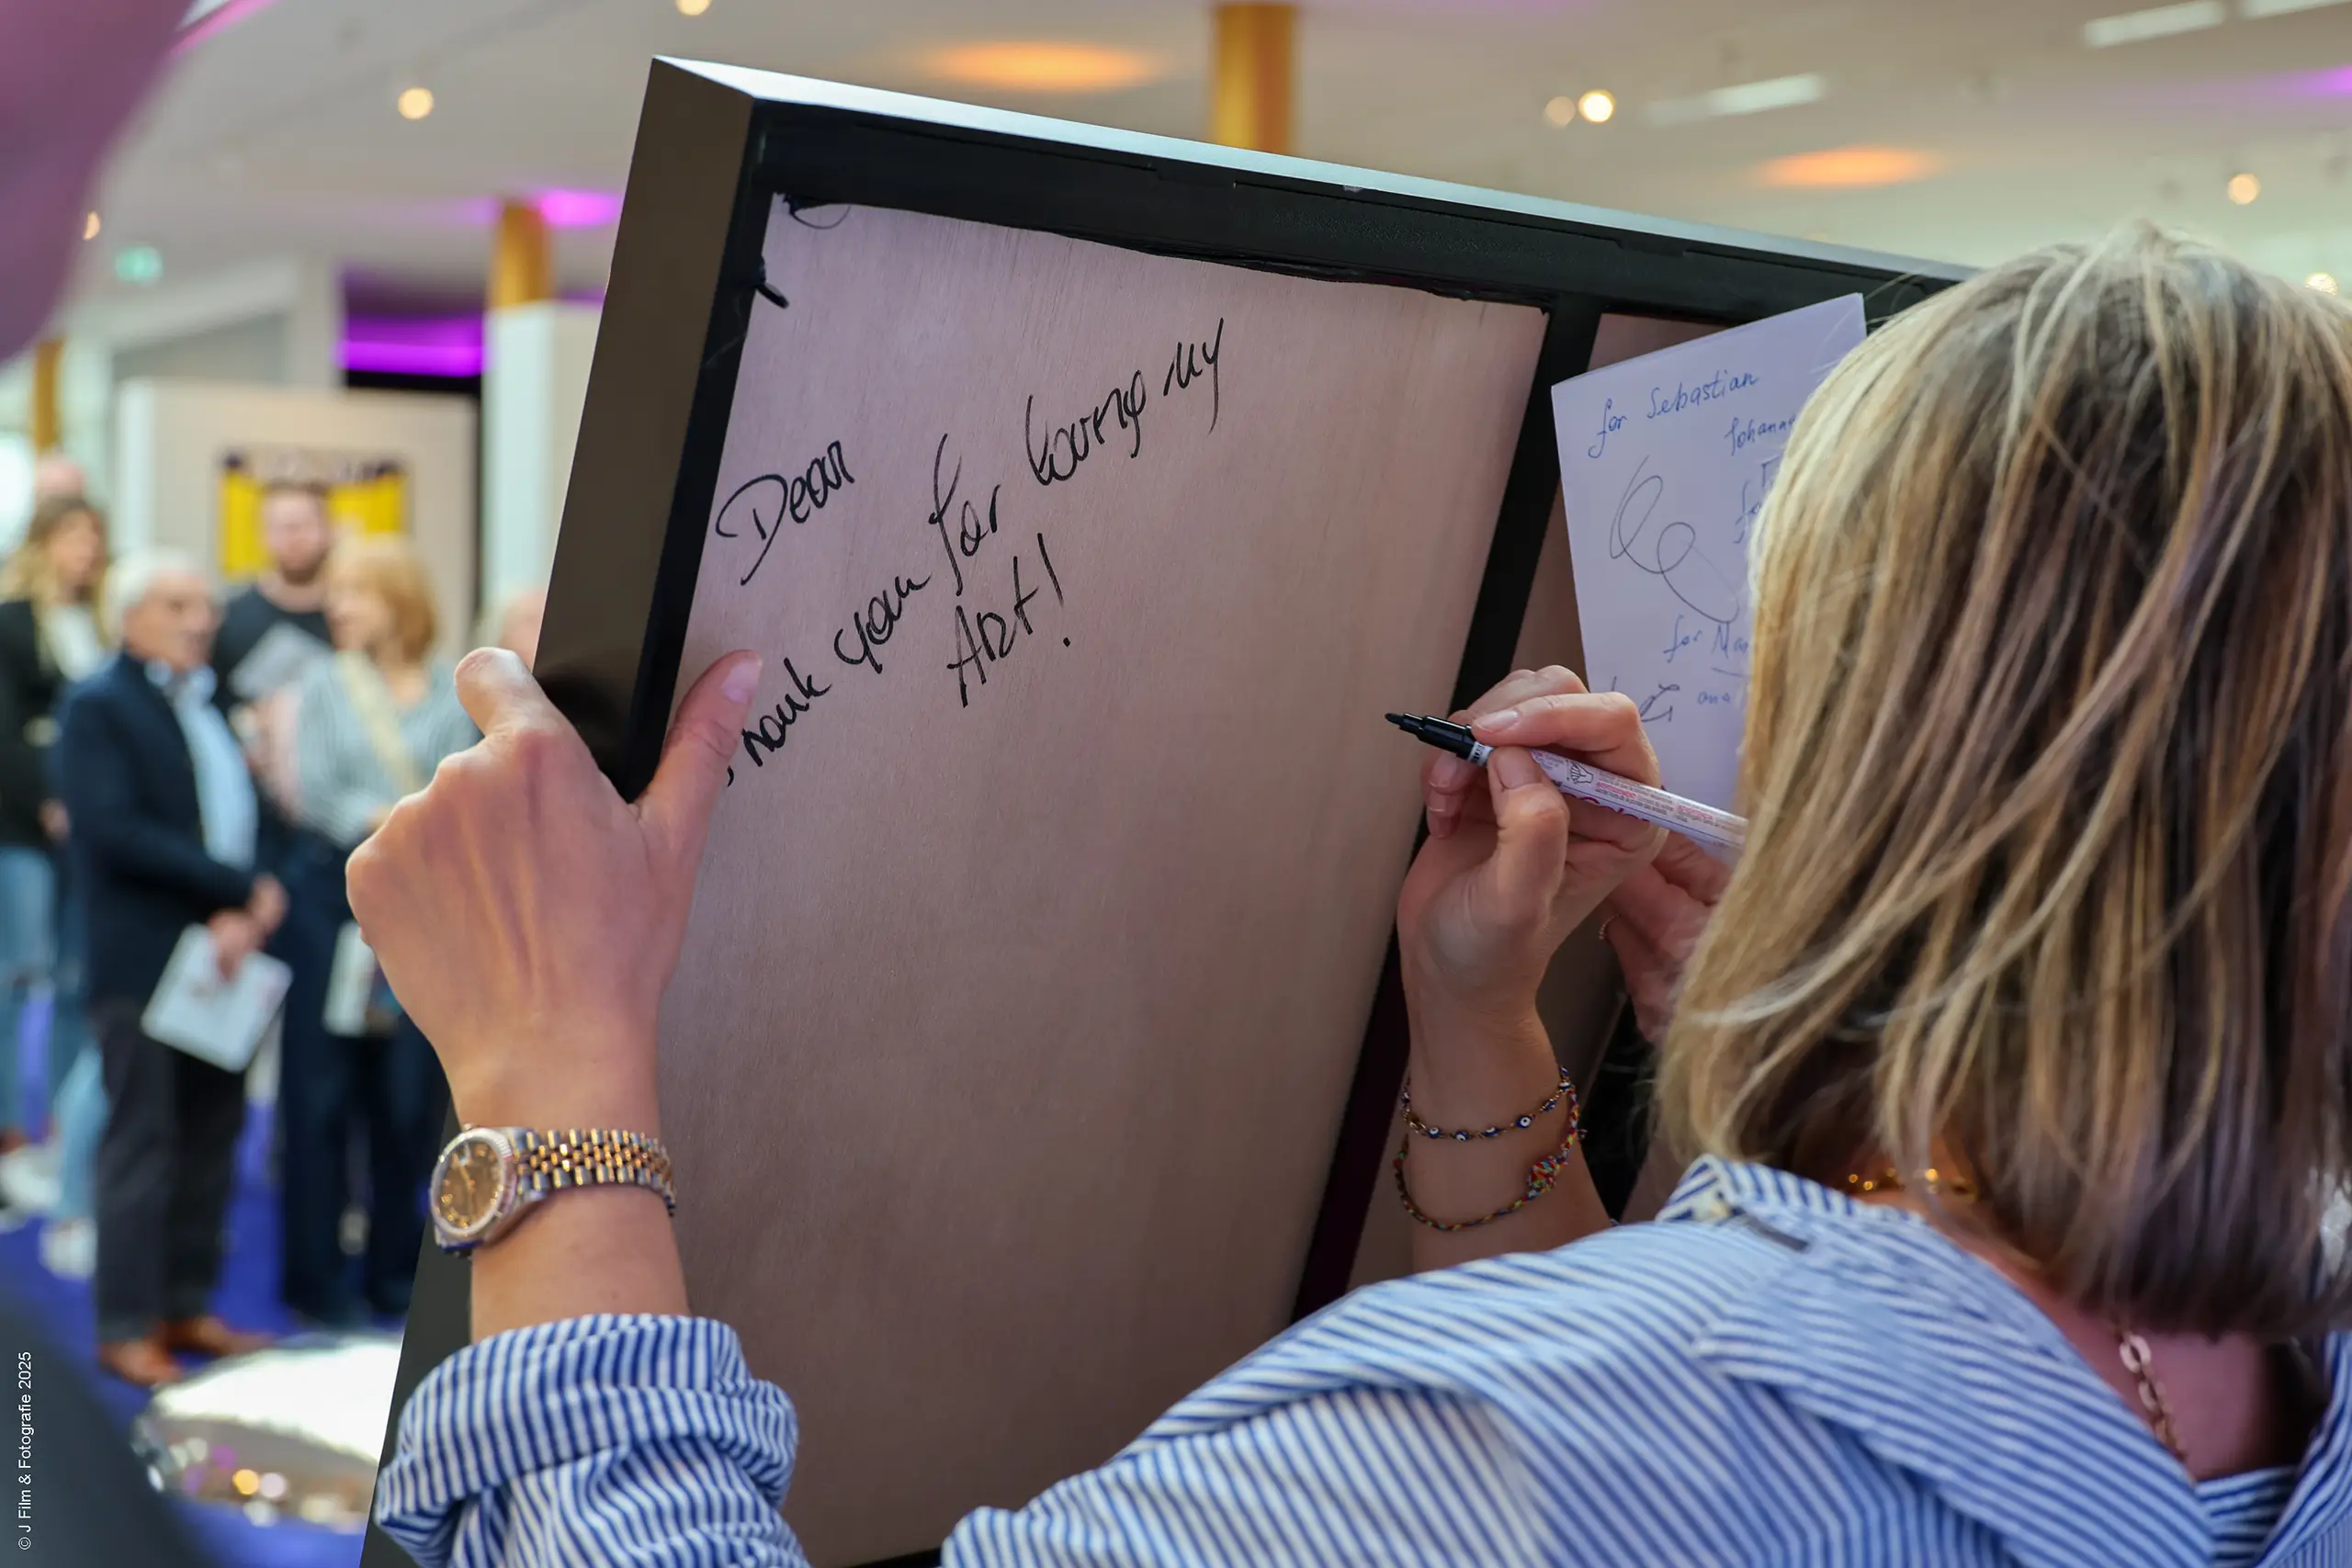 Dear
Thank you for loving my
Art!
for Sebastian
Johanne
for Mar
© J Film & Fotografie 2025